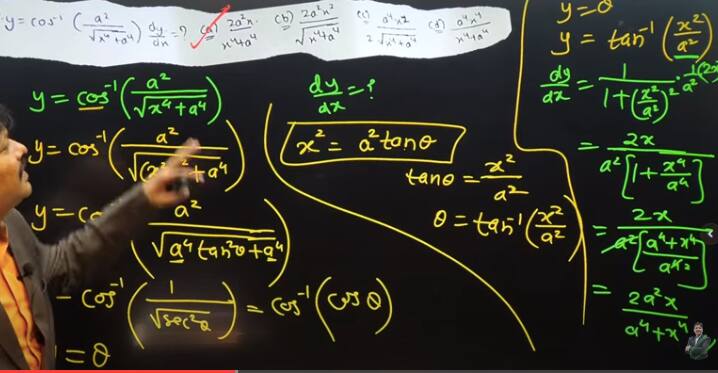 y = cos⁻¹ (a²/√(x⁴+a⁴)) dy/dx = ? (a) 2a²x/(x⁴+a⁴) (b) 2a²x²/√(x⁴+a⁴) (d) a⁴x⁴/(x⁴+a⁴)
y = cos⁻¹ (a²/√(x⁴+a⁴))
y = cos⁻¹ (a²/√((x²)²+a⁴))
a²/√(a⁴tan²θ+a⁴)
cos⁻¹ (1/√sec²θ) = cos⁻¹ (cos θ)
= θ
dy/dx = ?
x² = a² tanθ
tanθ = x²/a²
θ = tan⁻¹ (x²/a²)
y = θ
y = tan⁻¹ (x²/a²)
dy/dx = 1/(1+(x²/a²)²) · 1/a² (2x
= 2x/(a²[1+x⁴/a⁴])
= 2x/(a²[(a⁴+x⁴)/a⁴])
= 2a²x/(a⁴+x⁴)